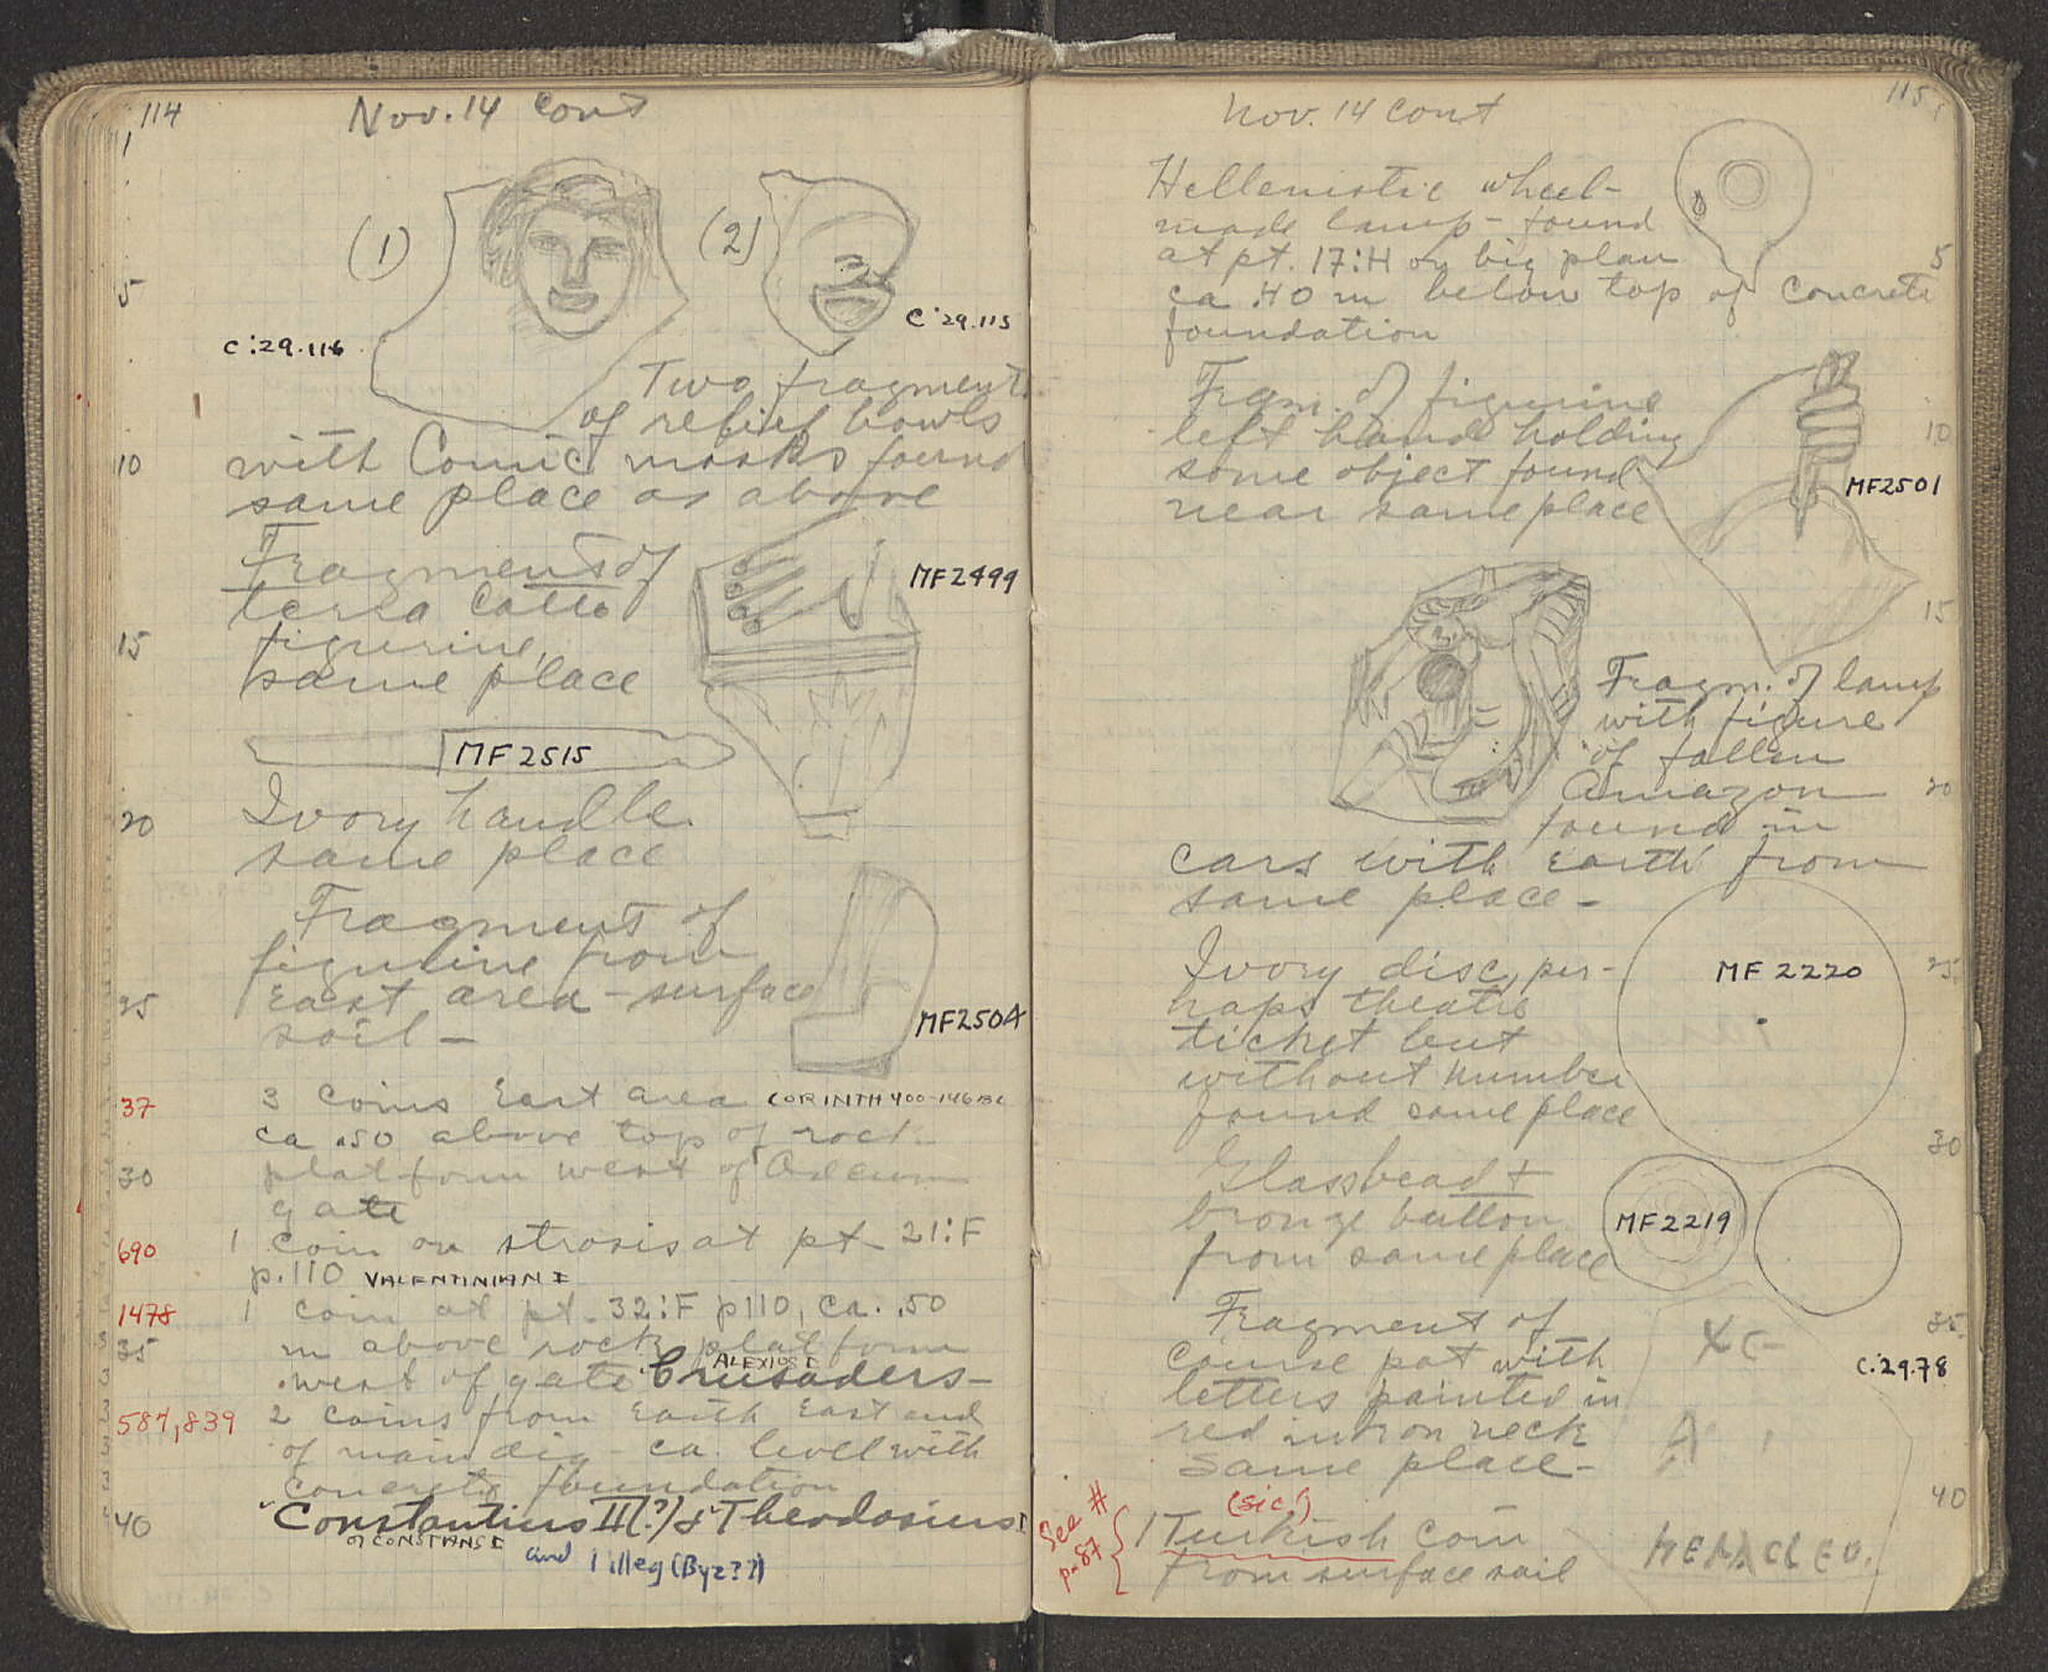 114
Nov. 14 cont
1
(1)
(2)
5
C:29.116
C:29.115
Two fragments
of relief bowls
10
with Comic masks found
same place as above
Fragments of
terra cotta
15
figurine,
same place
MF2499
MF2515
20
Ivory handle
same place
Fragment of
figurine from
25
East area - surface
soil -
MF2504
37
3 coins East area CORINTH 400-146 BC
ca .50 above top of rock
30
platform west of Odeum
gate
690
1 coin on strosis at pt. 21:F
p.110 VALENTINIAN I
1478
1 coin at pt. 32:F p110, ca. .50
35
m above rock platform
west of gate Crusaders -
ALEXIOS I
584, 839
2 coins from Earth East end
of main dig - ca. level with
concrete foundation
40
Constantius II(?) & Theodosius I
or CONSTANS I
and 1 illeg (Byz??)
115
Nov. 14 cont
Hellenistic wheel-
made lamp - found
at pt. 17:H on big plan
5
ca .40 m below top of concrete
foundation
Fragm. of figurine
10
left hand holding
some object found
near same place
MF2501
15
Fragm. of lamp
with figure
of fallen
20
Amazon
found in
cars with Earth from
same place -
25
Ivory disc, per-
haps theatre
ticket but
without number
found same place
MF 2220
30
Glassbead +
bronze button
from same place
MF2219
35
Fragment of
course pot with
letters painted in
red ink on neck
same place -
C:29.78
40
See #
p. 87
(sic!)
1 Turkish coin
from surface soil